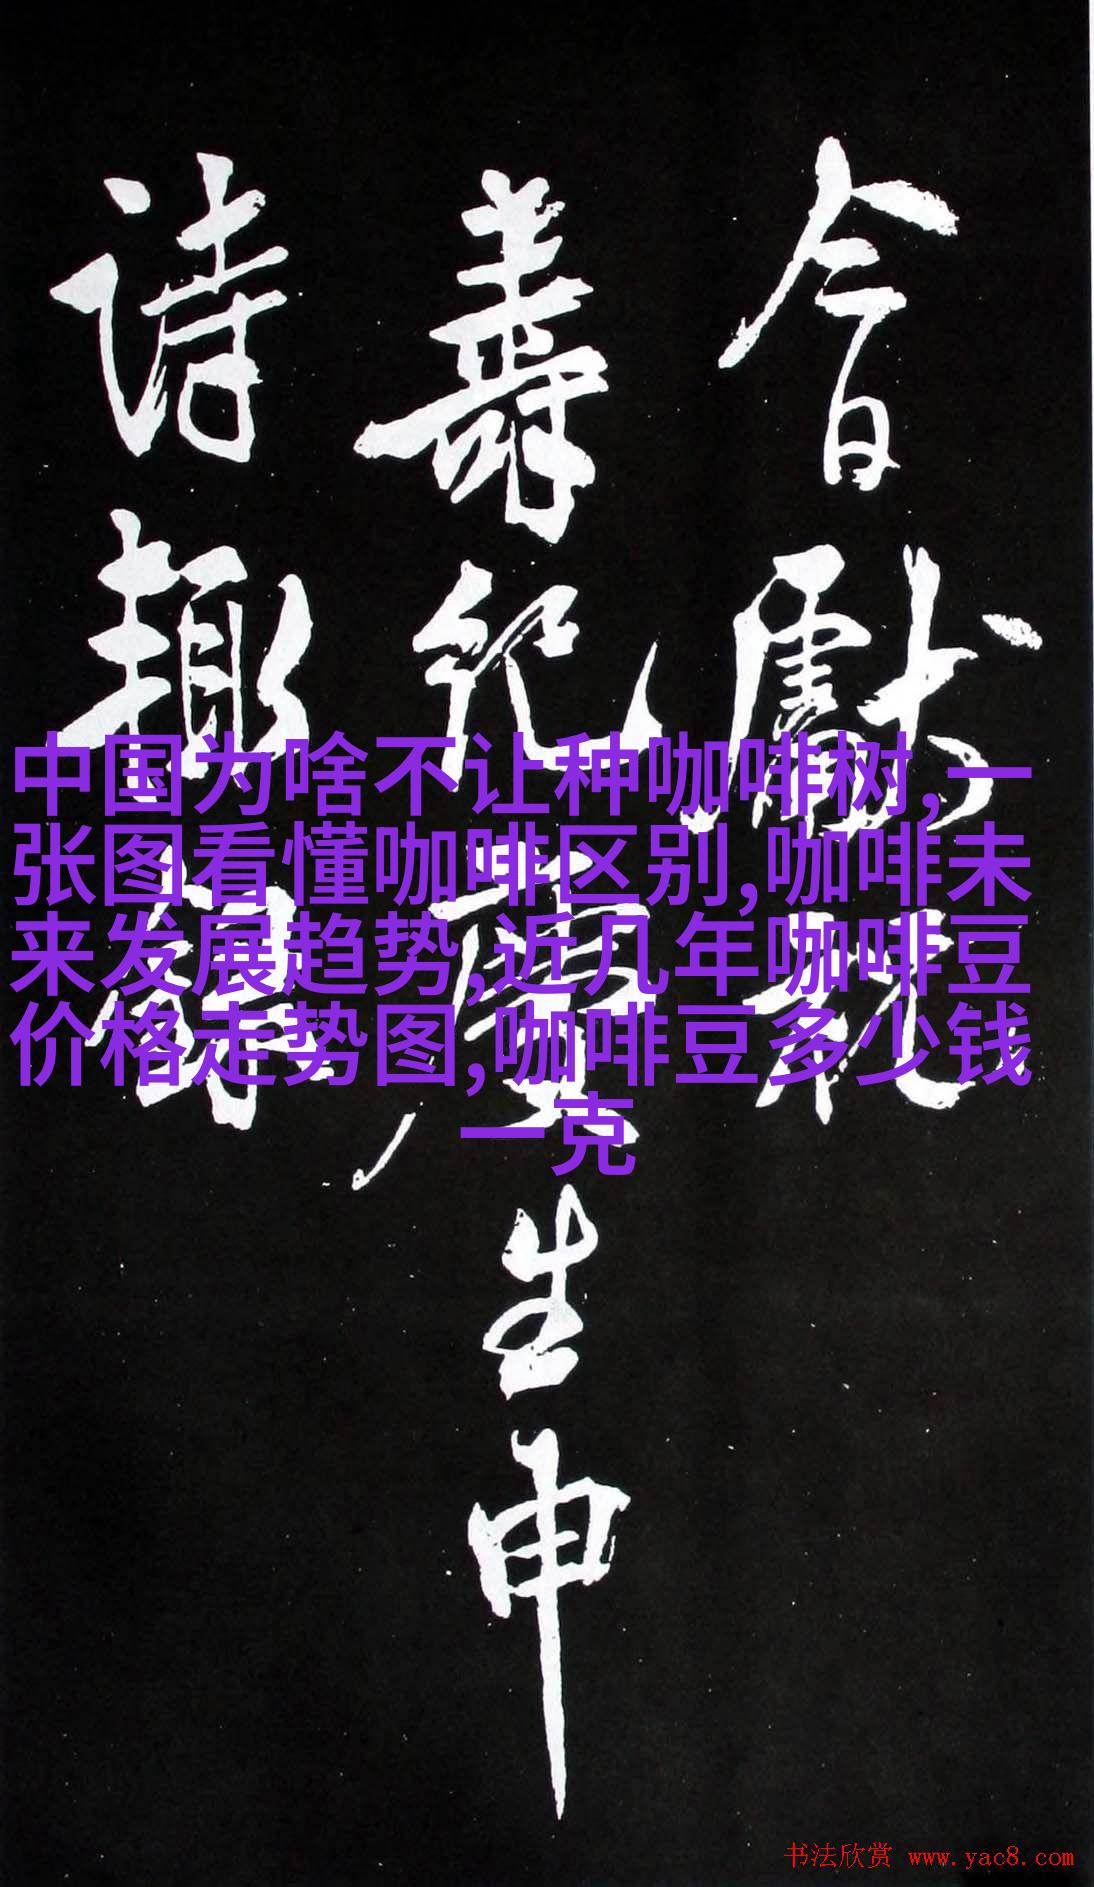 今日献祝
寿纪庆生申
诗趣
中国为啥不让种咖啡树,一
张图看懂咖啡区别,咖啡未
来发展趋势,近几年咖啡豆
价格走势图,咖啡豆多少钱
一克
书法欣赏 www.yac8.com